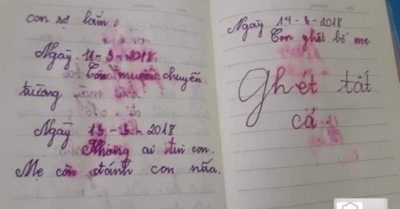 con sợ lắm.
Ngày 11-3-2018
Con muốn chuyển
trường
Ngày 13-3-2018
Không ai tin con.
Mẹ còn đánh con nữa.
Ngày 14-3-2018
Con ghét bố mẹ
Ghét tất
cả